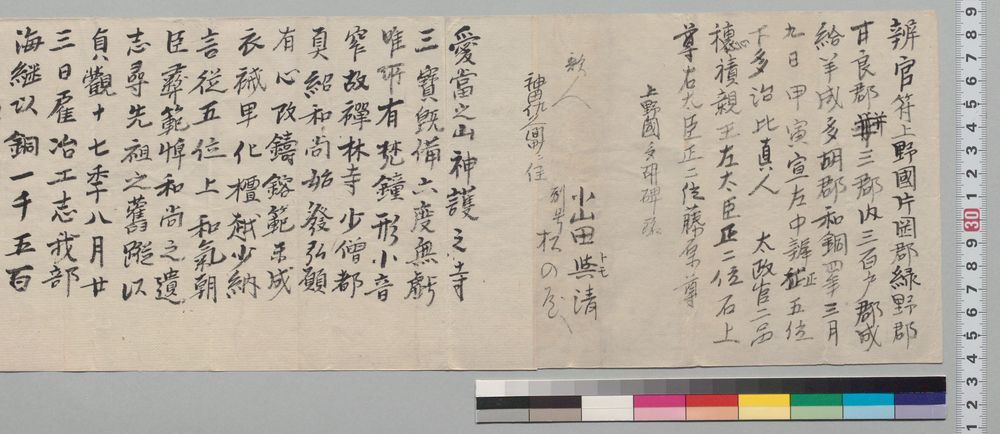 辨官符上野國片罡郡緑野郡
甘良郡并三郡内三百户郡成
給羊成多胡郡和銅四年三月
九日甲寅宣左中辨正五位
下多治比真人 太政官二品
穗積親王左太臣正二位石上
尊右太臣正二位藤原尊
上野國多胡碑
歌人
小山田與清
トモ
別号松の屋
愛當之山神護之寺
三寶既備六度無虧
唯所有梵鐘形小音
窄故禪林寺少僧都
真紹和尚始發弘願
有心改鑄鎔範未成
衣祴早化檀越少納
言從五位上和氣朝
臣彜範悼和尚之遺
志尋先祖之舊蹤以
貞觀十七季八月廿
三日雇冶工志我部
海継以銅一千五百